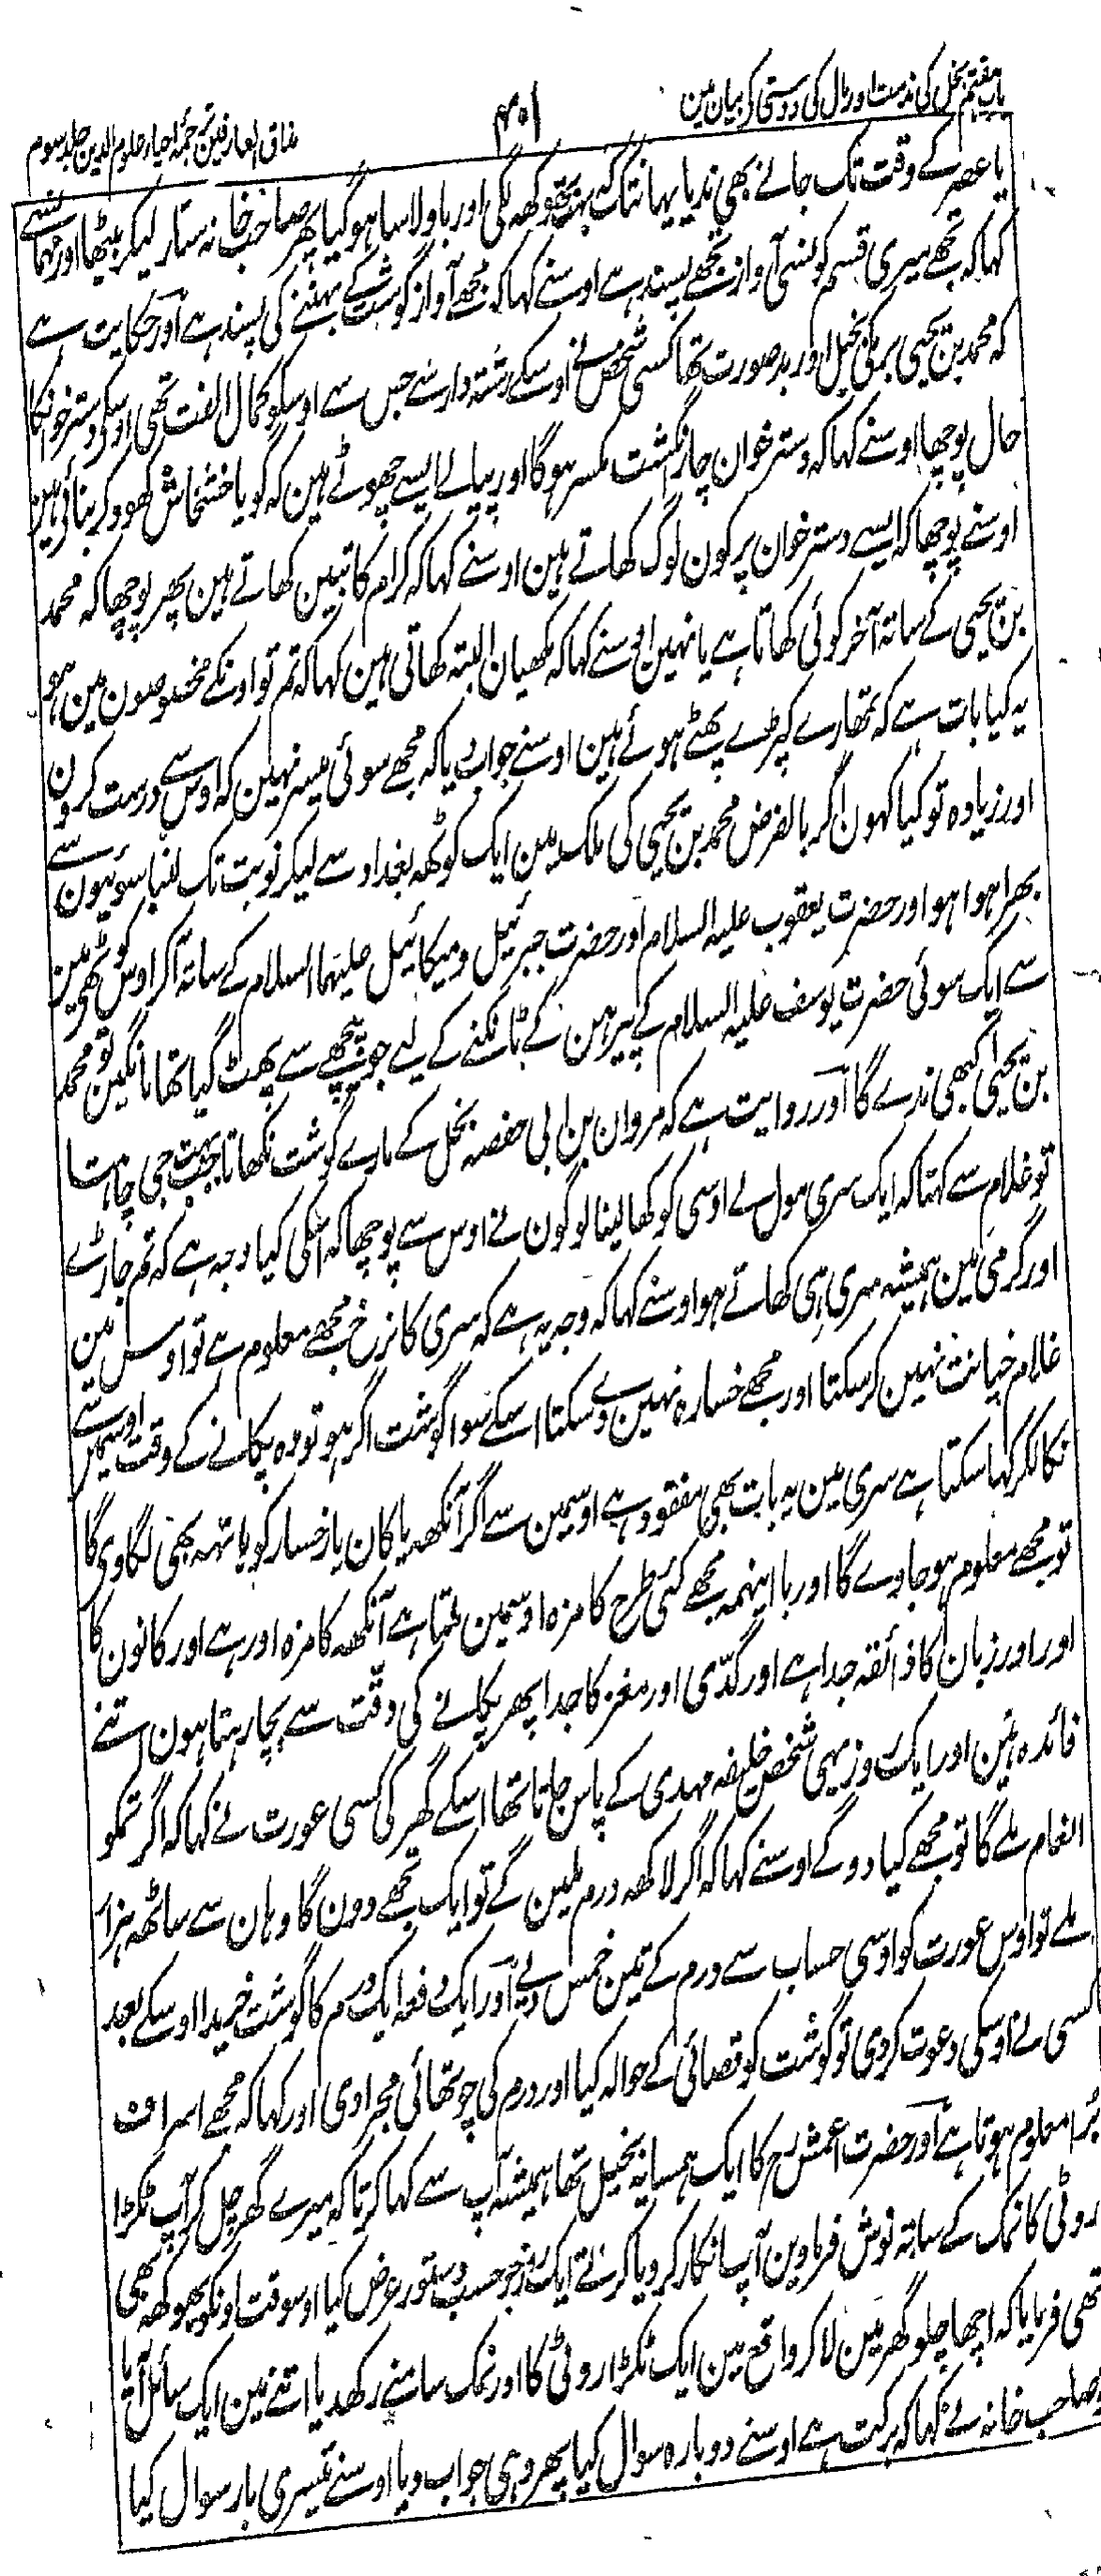 باب ہفتم بخل کی مذمت اور مال کی دوستی کے بیان مین
۴۰۱
مذاق العارفین ترجمۂ احیاء علوم الدین جلد سوم
یا عصر کے وقت تک جانے بھی ندیا یہانتک کہ بہت بھوکھ لگی اور باولا سا ہوگیا پھر صاحب خانہ ستار لیکر بیٹھا اور مہمان سے
کہا کہ تجھے میری قسم کونسی آواز تجھے پسند ہے اوسنے کہا کہ مجھے آواز گوشت کے بھننے کی پسند ہے اور حکایت ہے
کہ محمد بن یحیی برمکی بخیل اور بد صورت تھا کسی شخص نے اوسکے رشتہ دار سے جس سے اوسکو کمال الفت تھی اوسکی دسترخوان کا
حال پوچھا اوسنے کہا کہ دسترخوان چار انگشت مکسر ہوگا اور پیالے ایسے چھوٹے ہین کہ گویا خشخاش کھود کر بنائی ہین
اوسنے پوچھا کہ ایسے دسترخوان پر کون لوگ کھاتے ہین اوسنے کہا کہ کرام کاتبین کھاتے ہین پھر پوچھا کہ محمد
بن یحیی کے ساتھ آخر کوئی کھاتا ہے یا نہین اوسنے کہا کہ مکھیان البتہ کھاتی ہین کہا کہ تم تو اونکے مخصوصون مین ہو
یہ کیا بات ہے کہ تمھارے کپڑے پھٹے ہوئے ہین اوسنے جواب دیا کہ مجھے سوئی میسر نہین کہ اوس سے درست کرون
اور زیادہ تو کیا کہون اگر بالفرض محمد بن یحیی کی ملک مین ایک کوٹھہ بغداد سے لیکر نوبت تک لنبا سوئیون سے
بھرا ہوا ہو اور حضرت یعقوب علیہ السلام اور حضرت جبرئیل ومیکائیل علیہما السلام کے ساتھ آکر اوس کوٹھے مین
سے ایک سوئی حضرت یوسف علیہ السلام کے پیرہن کے ٹانکنے کے لیے جو پیچھے سے پھٹ گیا تھا مانگین تو محمد
بن یحیی کبھی ندے گا اور روایت ہے کہ مروان بن ابی حفصہ بخل کے مارے گوشت نکھاتا جب بہت جی چاہتا
تو غلام سے کہتا کہ ایک سری مول لے اوسی کو کھا لیتا لوگون نے اوس سے پوچھا کہ اسکی کیا وجہ ہے کہ تم جاڑے
اور گرمی مین ہمیشہ سری ہی کھاتے ہو اوسنے کہا کہ وجہ یہ ہے کہ سری کا نرخ مجھے معلوم ہے تو اوس مین
غلام خیانت نہین کرسکتا اور مجھے خسارہ نہین دے سکتا اسکے سوا گوشت اگر ہو تو وہ پکانے کے وقت اوسمین سے
نکالکر کھا سکتا ہے سری مین یہ بات بھی مفقود ہے اوسمین سے اگر آنکھ یا کان یا رخسار کو ہاتھہ بھی لگاویگا
تو مجھے معلوم ہو جاوے گا اور با اینہمہ مجھے کئی طرح کا مزہ اوسمین ملتا ہے آنکھہ کا مزہ اور ہے اور کانون کا
اور اور زبان کا ذائقہ جدا ہے اور گدّی اور مغز کا جدا پھر پکانے کی دقّت سے بچا رہتا ہون اتنے
فائدہ ہین اور ایک روز یہی شخص خلیفہ مہدی کے پاس جاتا تھا اسکے گھر کی کسی عورت نے کہا کہ اگر تمکو
انعام ملے گا تو مجھے کیا دوگے اوسنے کہا کہ اگر لاکھہ درم ملین گے تو ایک تجھے دون گا وہان سے ساٹھہ ہزار
ملے تو اوس عورت کو اوسی حساب سے درم کے تین خمس دیے اور ایک دفعہ ایک درم کا گوشت خریدا اوسکے بعد
کسی نے اوسکی دعوت کردی تو گوشت کو قصائی کے حوالہ کیا اور درم کی چوتھائی مجرا دی اور کہا کہ مجھے اسراف
برا معلوم ہوتا ہے اور حضرت اعمش رح کا ایک ہمسایہ بخیل تھا ہمیشہ آپ سے کہا کرتا کہ میرے گھر چل کر آپ ٹکڑا
روٹی کا نمک کے ساتھ نوش فرماوین آپ انکار کردیا کرتے ایک روز جو حسب دستور عرض کیا اوسوقت اونکو بھوکھہ بھی
تھی فرمایا کہ اچھا چلو گھر مین لاکر واقع مین ایک ٹکڑا روٹی کا اور نمک سامنے رکھدیا اتنے مین ایک سائل آیا
صاحب خانہ نے کہا کہ برکت ہے اوسنے دوبارہ سوال کیا پھر وہی جواب دیا اوسنے تیسری بار سوال کیا